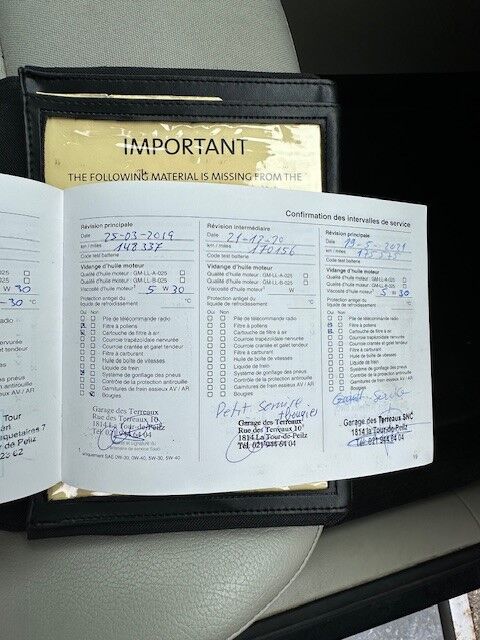 IMPORTANT
THE FOLLOWING MATERIAL IS MISSING FROM THE
Confirmation des intervalles de service
Révision principale
Date 25-03-2019
km / miles 148337
Code test batterie
Vidange d'huile moteur
Qualité d'huile moteur: GM-LL-A-025
Qualité d'huile moteur: GM-LL-B-025
Viscosité d'huile moteur¹ 5 W 30
Protection antigel du
liquide de refroidissement °C
Oui Non
Pile de télécommande radio
Filtre à pollens
Cartouche de filtre à air
Courroie trapézoïdale nervurée
Courroie crantée et galet tendeur
Filtre à carburant
Huile de boîte de vitesses
Liquide de frein
Système de gonflage des pneus
Contrôle de la protection antirouille
Garnitures de frein essieux AV / AR
Bougies
Garage des Terreaux
Rue des Terreaux 10
1814 La Tour-de-Peilz
Tél. 021 944 64 04
uniquement SAE 0W-30, 0W-40, 5W-30, 5W-40
Révision intermédiaire
Date 21-12-20
km / miles 170156
Code test batterie
Vidange d'huile moteur
Qualité d'huile moteur: GM-LL-A-025
Qualité d'huile moteur: GM-LL-B-025
Viscosité d'huile moteur¹ W
Protection antigel du
liquide de refroidissement °C
Oui Non
Pile de télécommande radio
Filtre à pollens
Cartouche de filtre à air
Courroie trapézoïdale nervurée
Courroie crantée et galet tendeur
Filtre à carburant
Huile de boîte de vitesses
Liquide de frein
Système de gonflage des pneus
Contrôle de la protection antirouille
Garnitures de frein essieux AV / AR
Petit Service
Bougies
Garage des Terreaux
Rue des Terreaux 10
1814 La Tour-de-Peilz
Tél. 021 944 64 04
Révision principale
Date 19-5-2021
km / miles
Code test batterie
Vidange d'huile moteur
Qualité d'huile moteur: GM-LL-A-025
Qualité d'huile moteur: GM-LL-B-025
Viscosité d'huile moteur¹ 5 W 30
Protection antigel du
liquide de refroidissement °C
Oui Non
Pile de télécommande radio
Filtre à pollens
Cartouche de filtre à air
Courroie trapézoïdale nervurée
Courroie crantée et galet tendeur
Filtre à carburant
Huile de boîte de vitesses
Liquide de frein
Système de gonflage des pneus
Contrôle de la protection antirouille
Garnitures de frein essieux AV / AR
Grand Service
Garage des Terreaux SNC
1814 la Tour-de-Peilz
Tél. 021 944 64 04